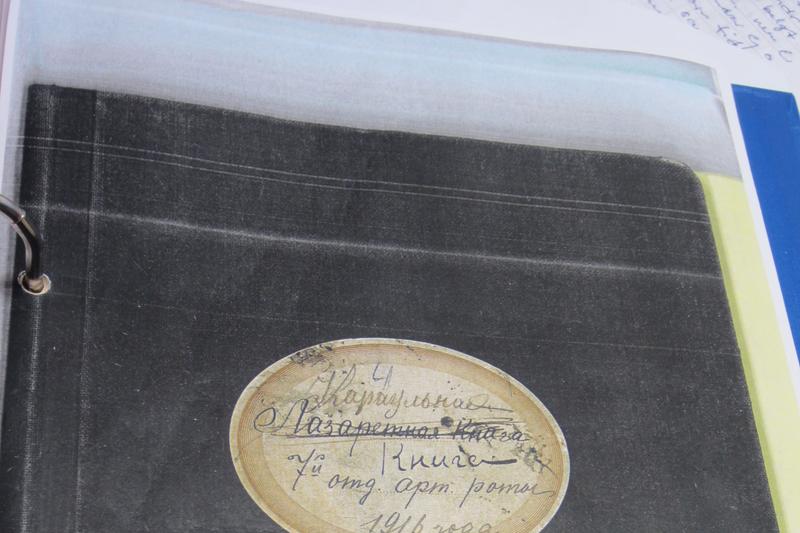 4
Караульная
Лазаретная Книга
Книга
7й отд. арт. роты
1916 года